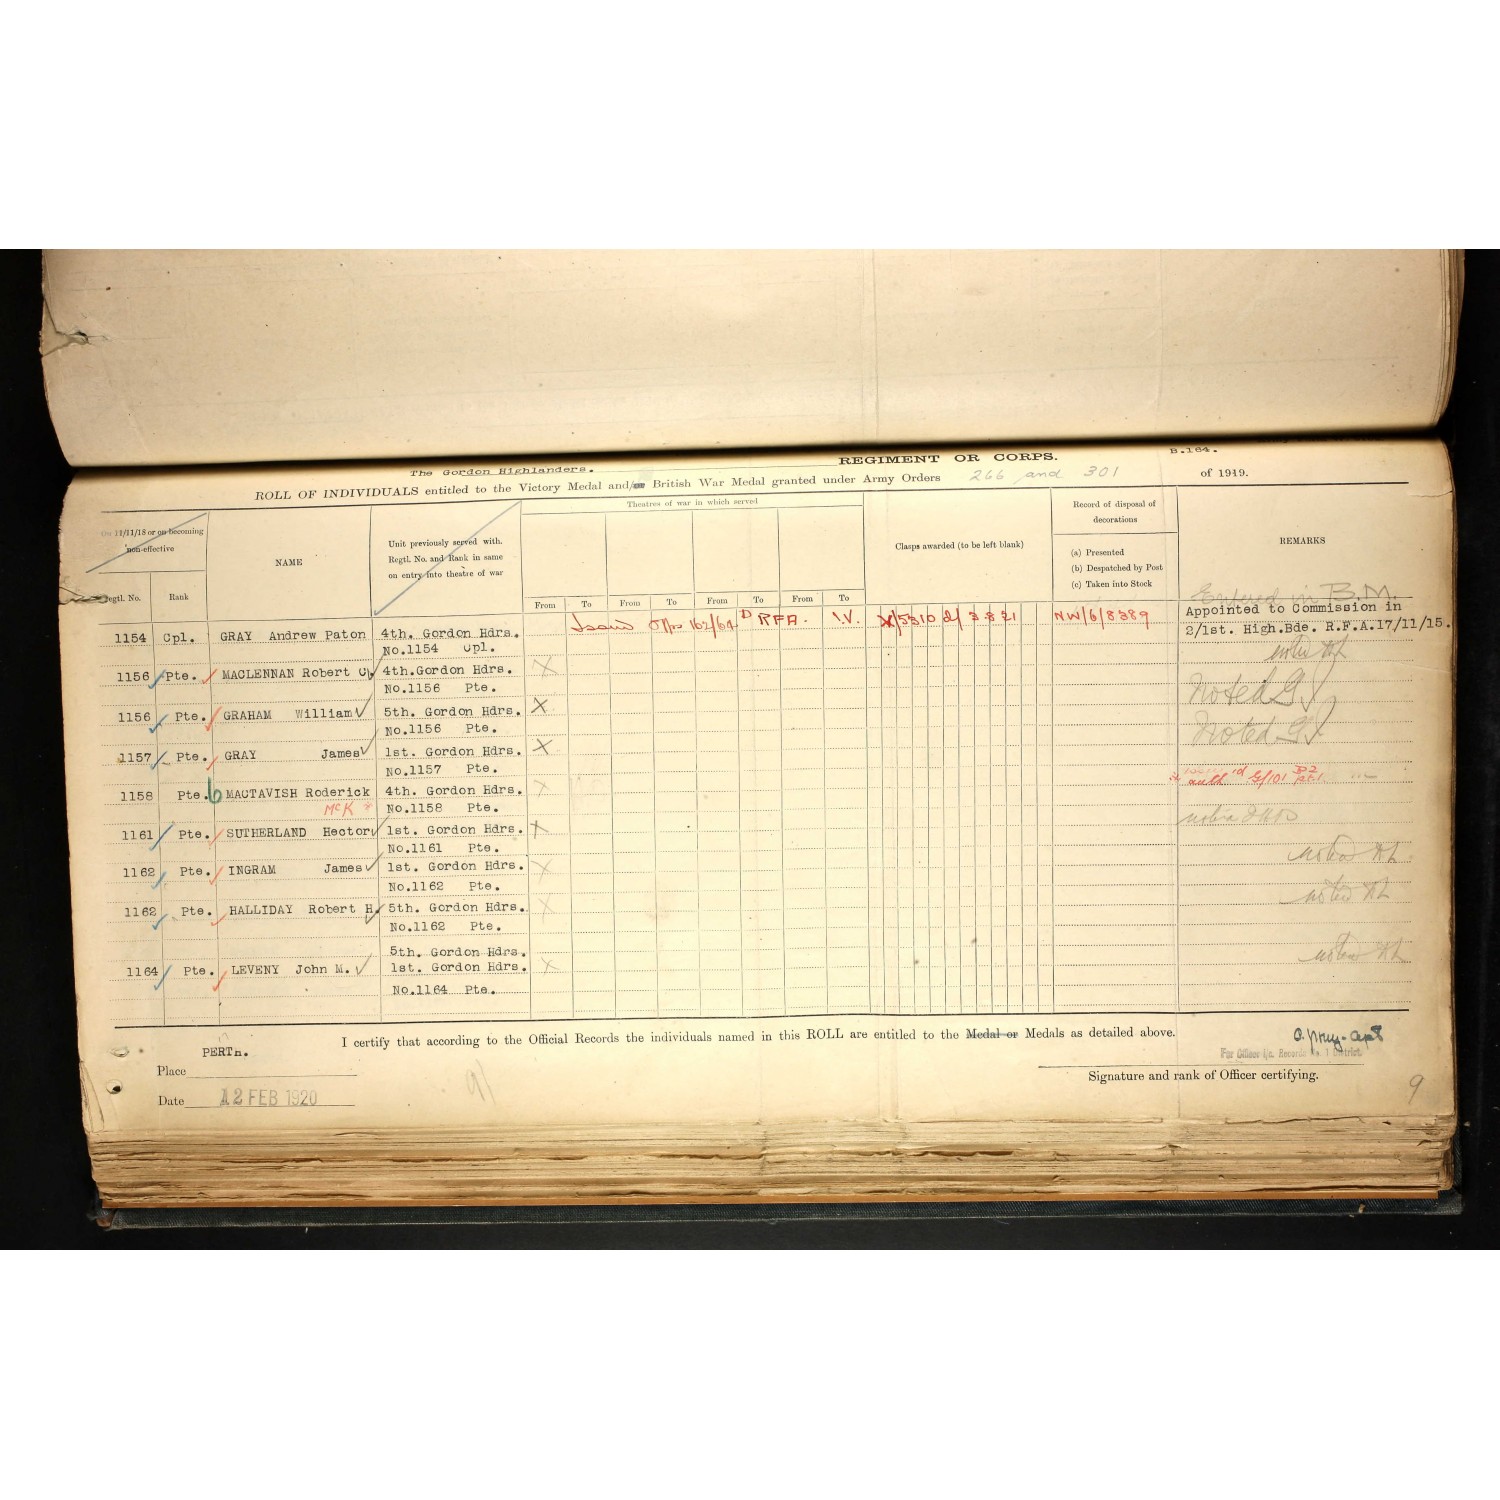 B.164.
The Gordon Highlanders. REGIMENT OR CORPS.
ROLL OF INDIVIDUALS entitled to the Victory Medal and/or British War Medal granted under Army Orders 266 and 301 of 1919.
On 11/11/18 or on becoming non-effective
Regtl. No.
Rank
NAME
Unit previously served with.
Regtl. No. and Rank in same
on entry into theatre of war
Theatres of war in which served
From To From To From To From To
Clasps awarded (to be left blank)
Record of disposal of
decorations
(a) Presented
(b) Despatched by Post
(c) Taken into Stock
REMARKS
Entered in B.M.
1154 Cpl. GRAY Andrew Paton 4th. Gordon Hdrs. 162/64 D RFA. I.V. NW/6/8389 Appointed to Commission in
No.1154 Cpl. 2/1st. High.Bde. R.F.A.17/11/15.
1156 Pte. MACLENNAN Robert C. 4th.Gordon Hdrs. X
No.1156 Pte. Noted
1156 Pte. GRAHAM William 5th. Gordon Hdrs. X
No.1156 Pte. Noted
1157 Pte. GRAY James 1st. Gordon Hdrs. X
No.1157 Pte.
1158 Pte. MACTAVISH Roderick 4th. Gordon Hdrs. X
McK * No.1158 Pte.
1161 Pte. SUTHERLAND Hector 1st. Gordon Hdrs. X
No.1161 Pte.
1162 Pte. INGRAM James 1st. Gordon Hdrs. X
No.1162 Pte.
1162 Pte. HALLIDAY Robert H. 5th. Gordon Hdrs. X
No.1162 Pte.
5th. Gordon Hdrs.
1164 Pte. LEVENY John M. 1st. Gordon Hdrs. X
No.1164 Pte.
I certify that according to the Official Records the individuals named in this ROLL are entitled to the Medal or Medals as detailed above.
PERTH.
Place
Date 12 FEB 1920
For Officer i/c. Records No. 1 District.
Signature and rank of Officer certifying.
9